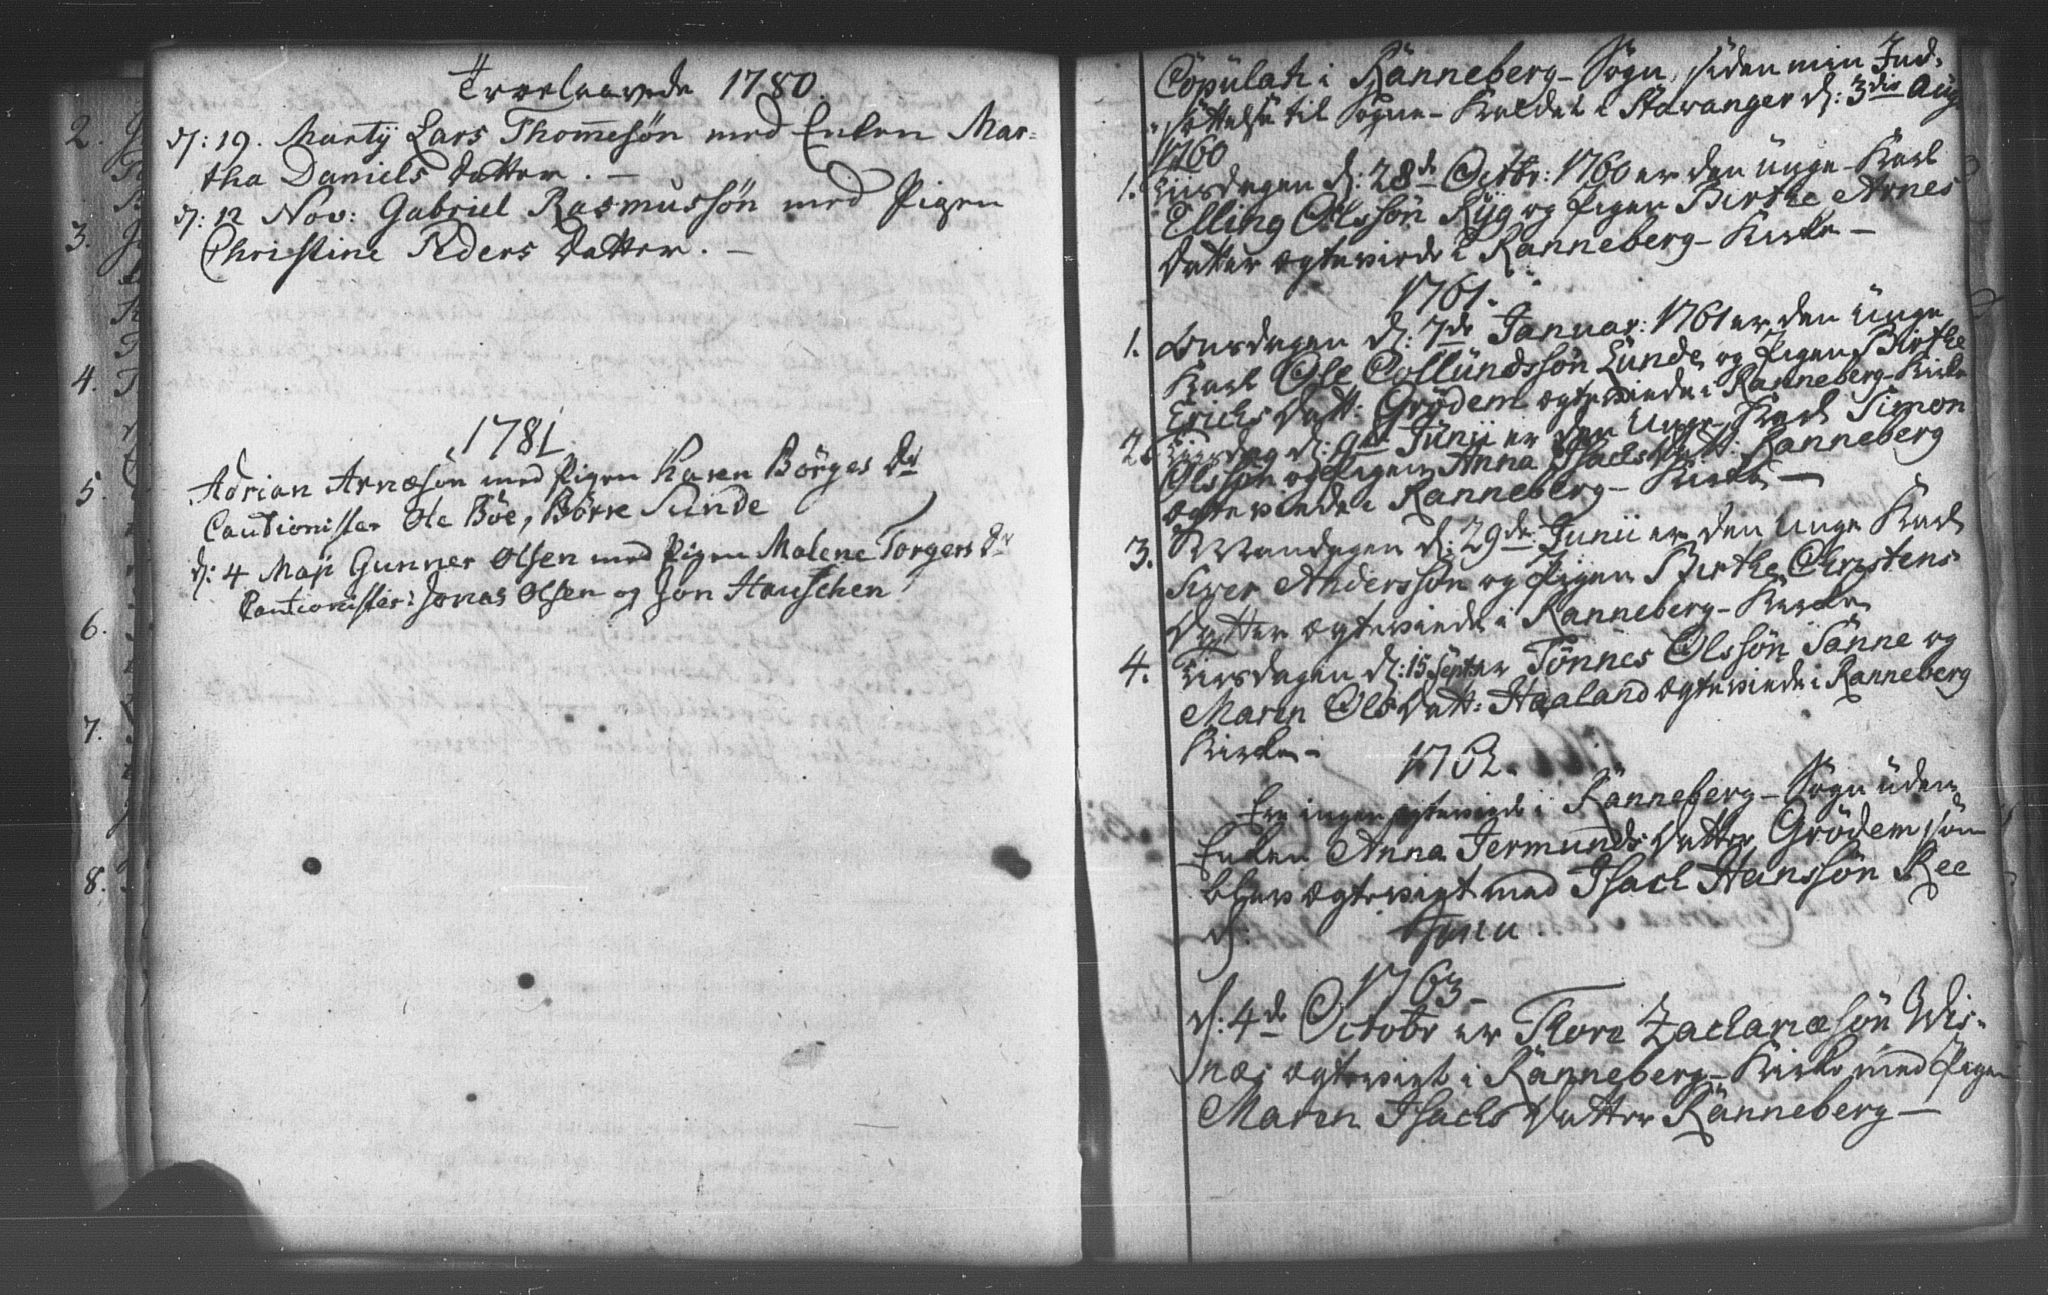 Troelovede 1780.
d: 19. Martij Lars Thommesøn med Enken Mar-
tha Daniels Datter. —
d: 12 Nov: Gabriel Rasmussøn med Pigen
Christine Peders Datter. —
1781
Adrian Arnesøn med Pigen Karen Børges Dr
Cautionister Ole Bøe, Børre Sunde
d: 4 Maji Gunner Olsen med Pigen Malene Torgers Dr
Cautionister: Jonas Olsen og Jon Hauschen
2.
3.
4.
5.
6.
7.
8.
Copulati i Ranneberg-Sogn, siden min Ind-
sættelse til Sogne-Kaldet i Stavanger d: 3die Aug
1760
1. Tiirsdagen d: 28de Octbr: 1760 er den unge Karl
Elling Olssøn Ryg og Pigen Birthe Arnes
Datter ægteviede i Ranneberg-Kirke —
1761.
1. Onsdagen d: 7de Januar: 1761 er den Unge
Karl Ole Collundssøn Lunde og Pigen Birthe
Erichs Datt: Grødem ægteviede i Ranneberg-Kirke
2. Tiirsdag d: 9de Junii er den Unge Karl Simon
Olssøn og Pigen Anna Isachs Datt: Ranneberg
ægteviede i Ranneberg-Kirke —
3. Mandagen d: 29de Junii er den Unge Karl
Siver Anderssøn og Pigen Birthe Christens
Datter ægteviede i Ranneberg-Kirke
4. Tiirsdagen d: 15 Sept er Tønnes Olssøn Sønne og
Maren Ols Datt: Haaland ægteviede i Ranneberg
Kirke -
1762.
Ere ingen ægteviede i Ranneberg-Sogn uden
Enken Anna Jermunds Datter Grødem, som
blev ægteviet med Isach Hanssøn Ree
d:
1763.
d: 4de Octobr er Thore Zachariæsøn Wis-
næs ægteviet i Ranneberg-Kirke med Pigen
Maren Isachs Datter Ranneberg —